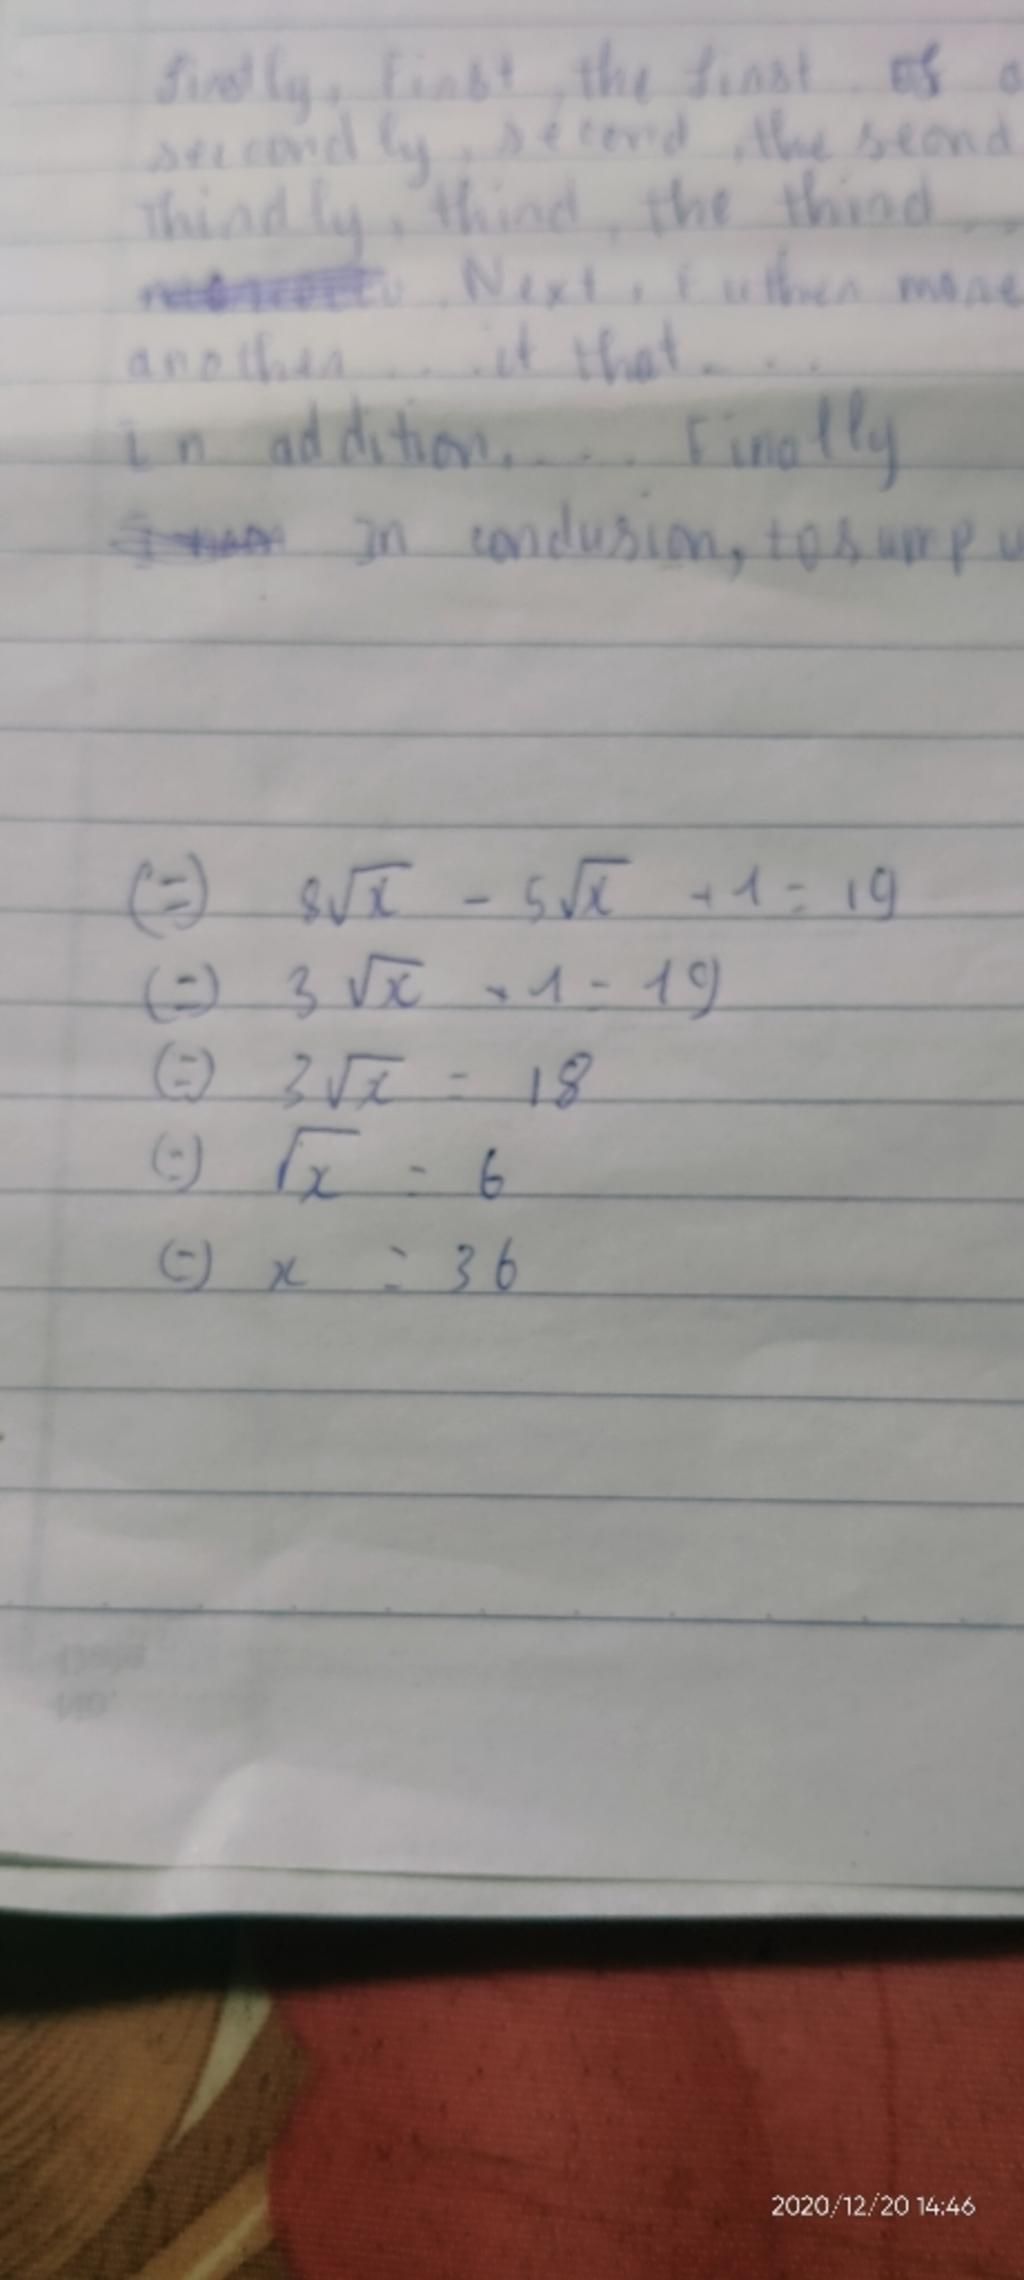 firstly, first, the first of a
secondly, second, the seond
Thirdly, third, the third...
Next, further more
another ... it that ...
in addition, .... Finally
In conclusion, to sump u
(=) 8√x - 5√x + 1 = 19
(=) 3√x + 1 = 19
(=) 3√x = 18
(=) √x = 6
(=) x = 36
2020/12/20 14:46